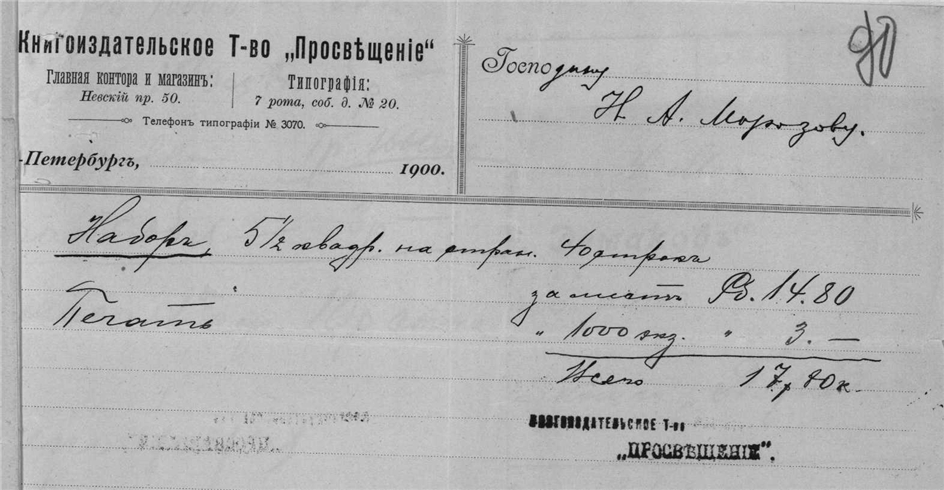 Книгоиздательское Т-во „Просвѣщеніе“
Главная контора и магазинъ:
Невскій пр. 50.
Типографія:
7 рота, соб. д. № 20.
Телефонъ типографіи № 3070.
-Петербургъ, 1900.
Господину
Н. А. Морозову.
90
Наборъ, 5 1/2 квадр. на стран. 40 строкъ
за листъ Рб. 14.80
Печать „ 1000 экз. „ 3.—
Всего 17,80 к.
КНИГОИЗДАТЕЛЬСКОЕ Т-во
„ПРОСВѢЩЕНІЕ“.